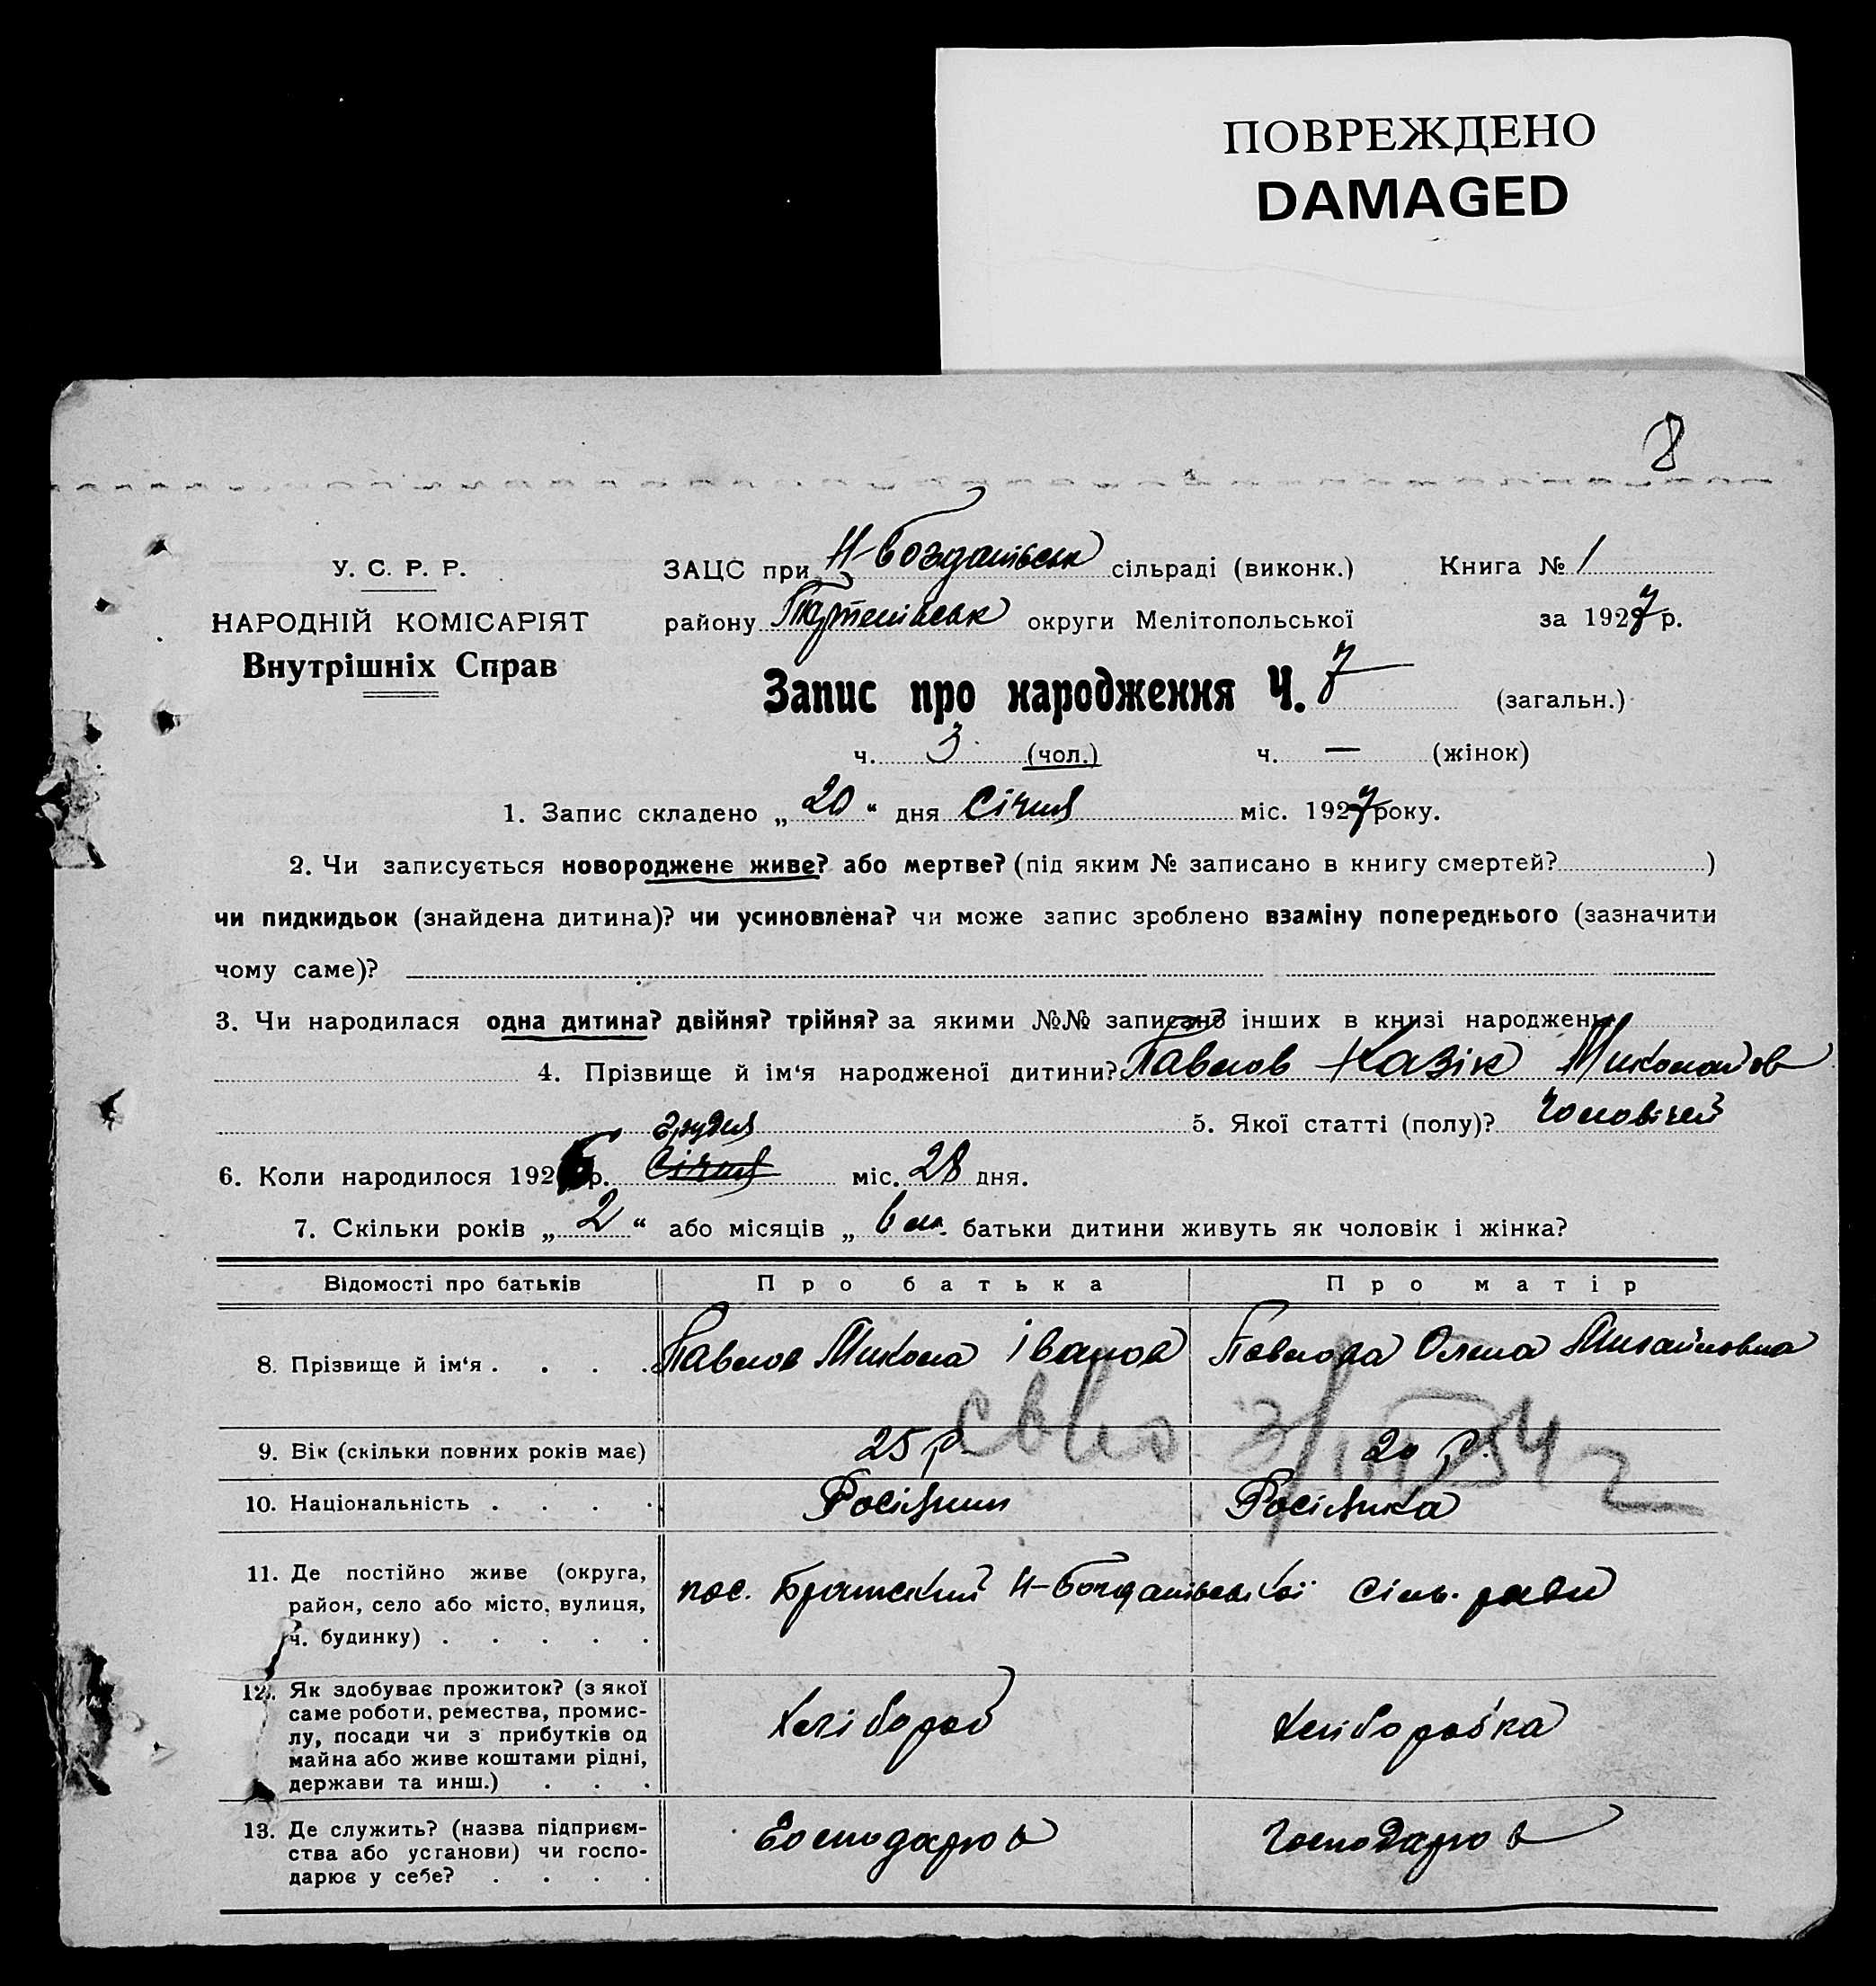 ПОВРЕЖДЕНО
DAMAGED
8
У. С. Р. Р.
НАРОДНІЙ КОМІСАРІЯТ
Внутрішніх Справ
ЗАЦС при Н-Богданівськ сільраді (виконк.) Книга № 1
району округи Мелітопольської за 1927 р.
Запис про народження Ч. 7 (загальн.)
ч. 3 (чол.) ч. — (жінок)
1. Запис складено „ 20 “ дня Січня міс. 1927 року.
2. Чи записується новороджене живе? або мертве? (під яким № записано в книгу смертей? )
чи пидкидьок (знайдена дитина)? чи усиновлена? чи може запис зроблено взаміну попереднього (зазначити
чому саме)?
3. Чи народилася одна дитина? двійня? трійня? за якими №№ записано інших в книзі народжень
4. Прізвище й ім‘я народженої дитини? Павлов Казік Миколайов
5. Якої статті (полу)? Чоловічей
грудня
6. Коли народилося 1926 р. Січня міс. 28 дня.
7. Скільки років „ 2 “ або місяців „ батьки дитини живуть як чоловік і жінка?
Відомості про батьків Про батька Про матір
8. Прізвище й ім‘я . . . . Павлов Микола Іванов Павлова Олена Михайловна
9. Вік (скільки повних років має) 25 р. 20 р.
10. Національність . . . . Росіянин Росіянка
11. Де постійно живе (округа,
район, село або місто, вулиця,
ч. будинку) . . . . .
пос. Братский Н-Богданівської Сіль. ради
12. Як здобуває прожиток? (з якої
саме роботи, ремества, промис-
лу, посади чи з прибутків од
майна або живе коштами рідні,
держави та инш.) . . .
Хлібороб Хліборобка
13. Де служить? (назва підприєм-
ства або установи) чи госпо-
дарює у себе? . . . .
Господарює Господарює